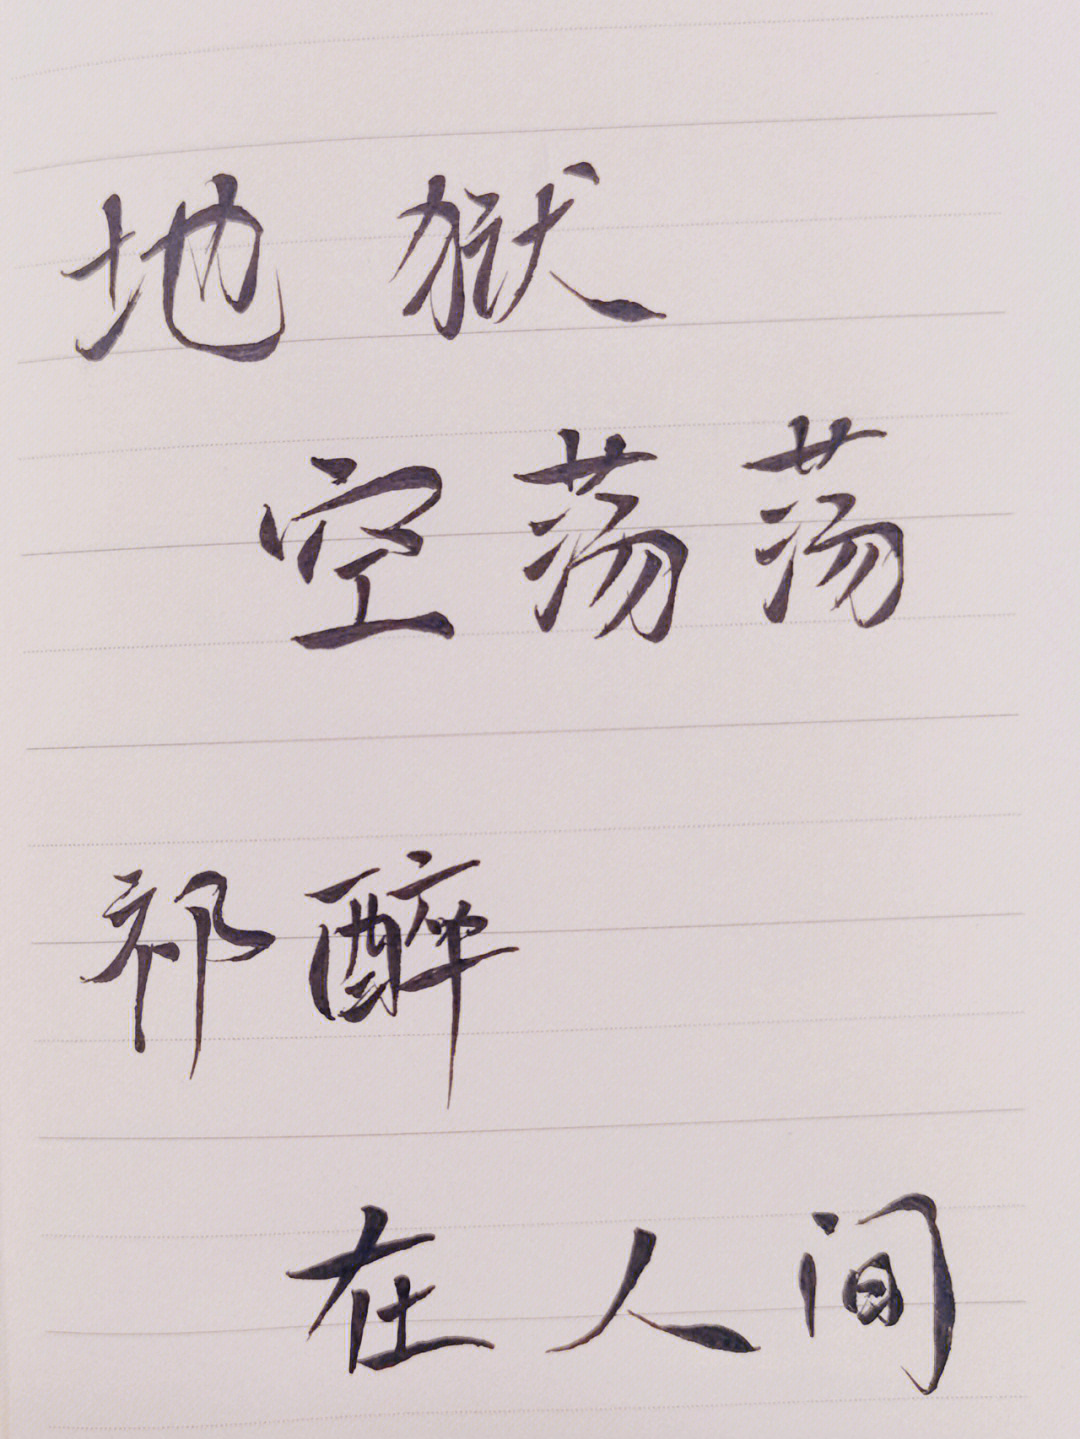 地狱
空荡荡
祁醉
在人间